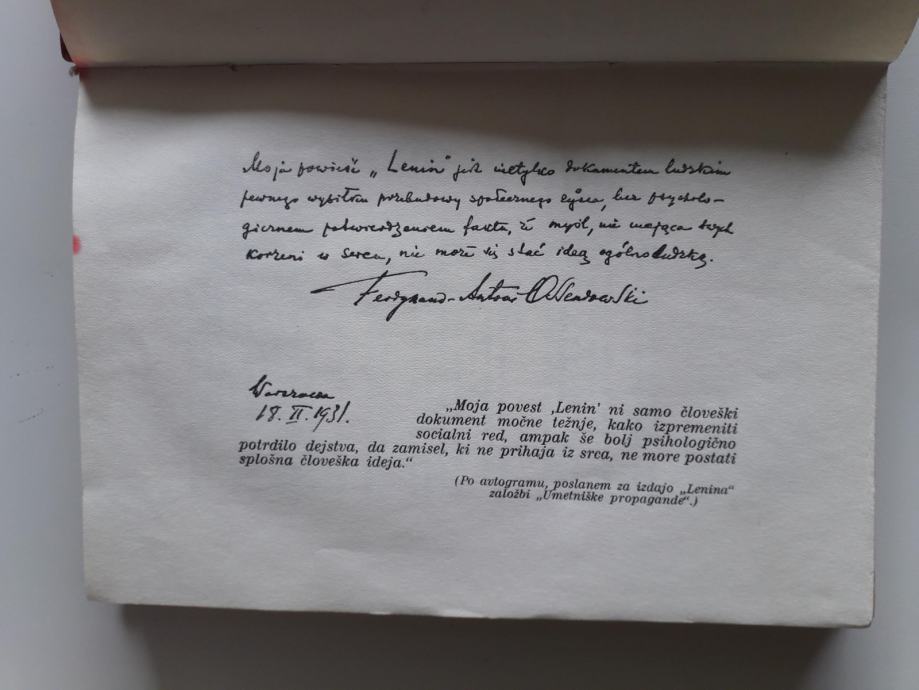 Moja powieść „Lenin" jest nietylko dokumentem ludzkim
pewnego wysiłku przebudowy społecznego, lecz psycholo-
gicznem potwierdzeniem faktu, że myśl, nie mająca swych
korzeni w sercu, nie może się stać ideą ogólnoludzką.
Ferdynand-Antoni Ossendowski
Warszawa
18. II. 1931.
„Moja povest ‚Lenin' ni samo človeški
dokument močne težnje, kako izpremeniti
socialni red, ampak še bolj psihologično
potrdilo dejstva, da zamisel, ki ne prihaja iz srca, ne more postati
splošna človeška ideja.“
(Po avtogramu, poslanem za izdajo „Lenina“
založbi „Umetniške propagande“.)